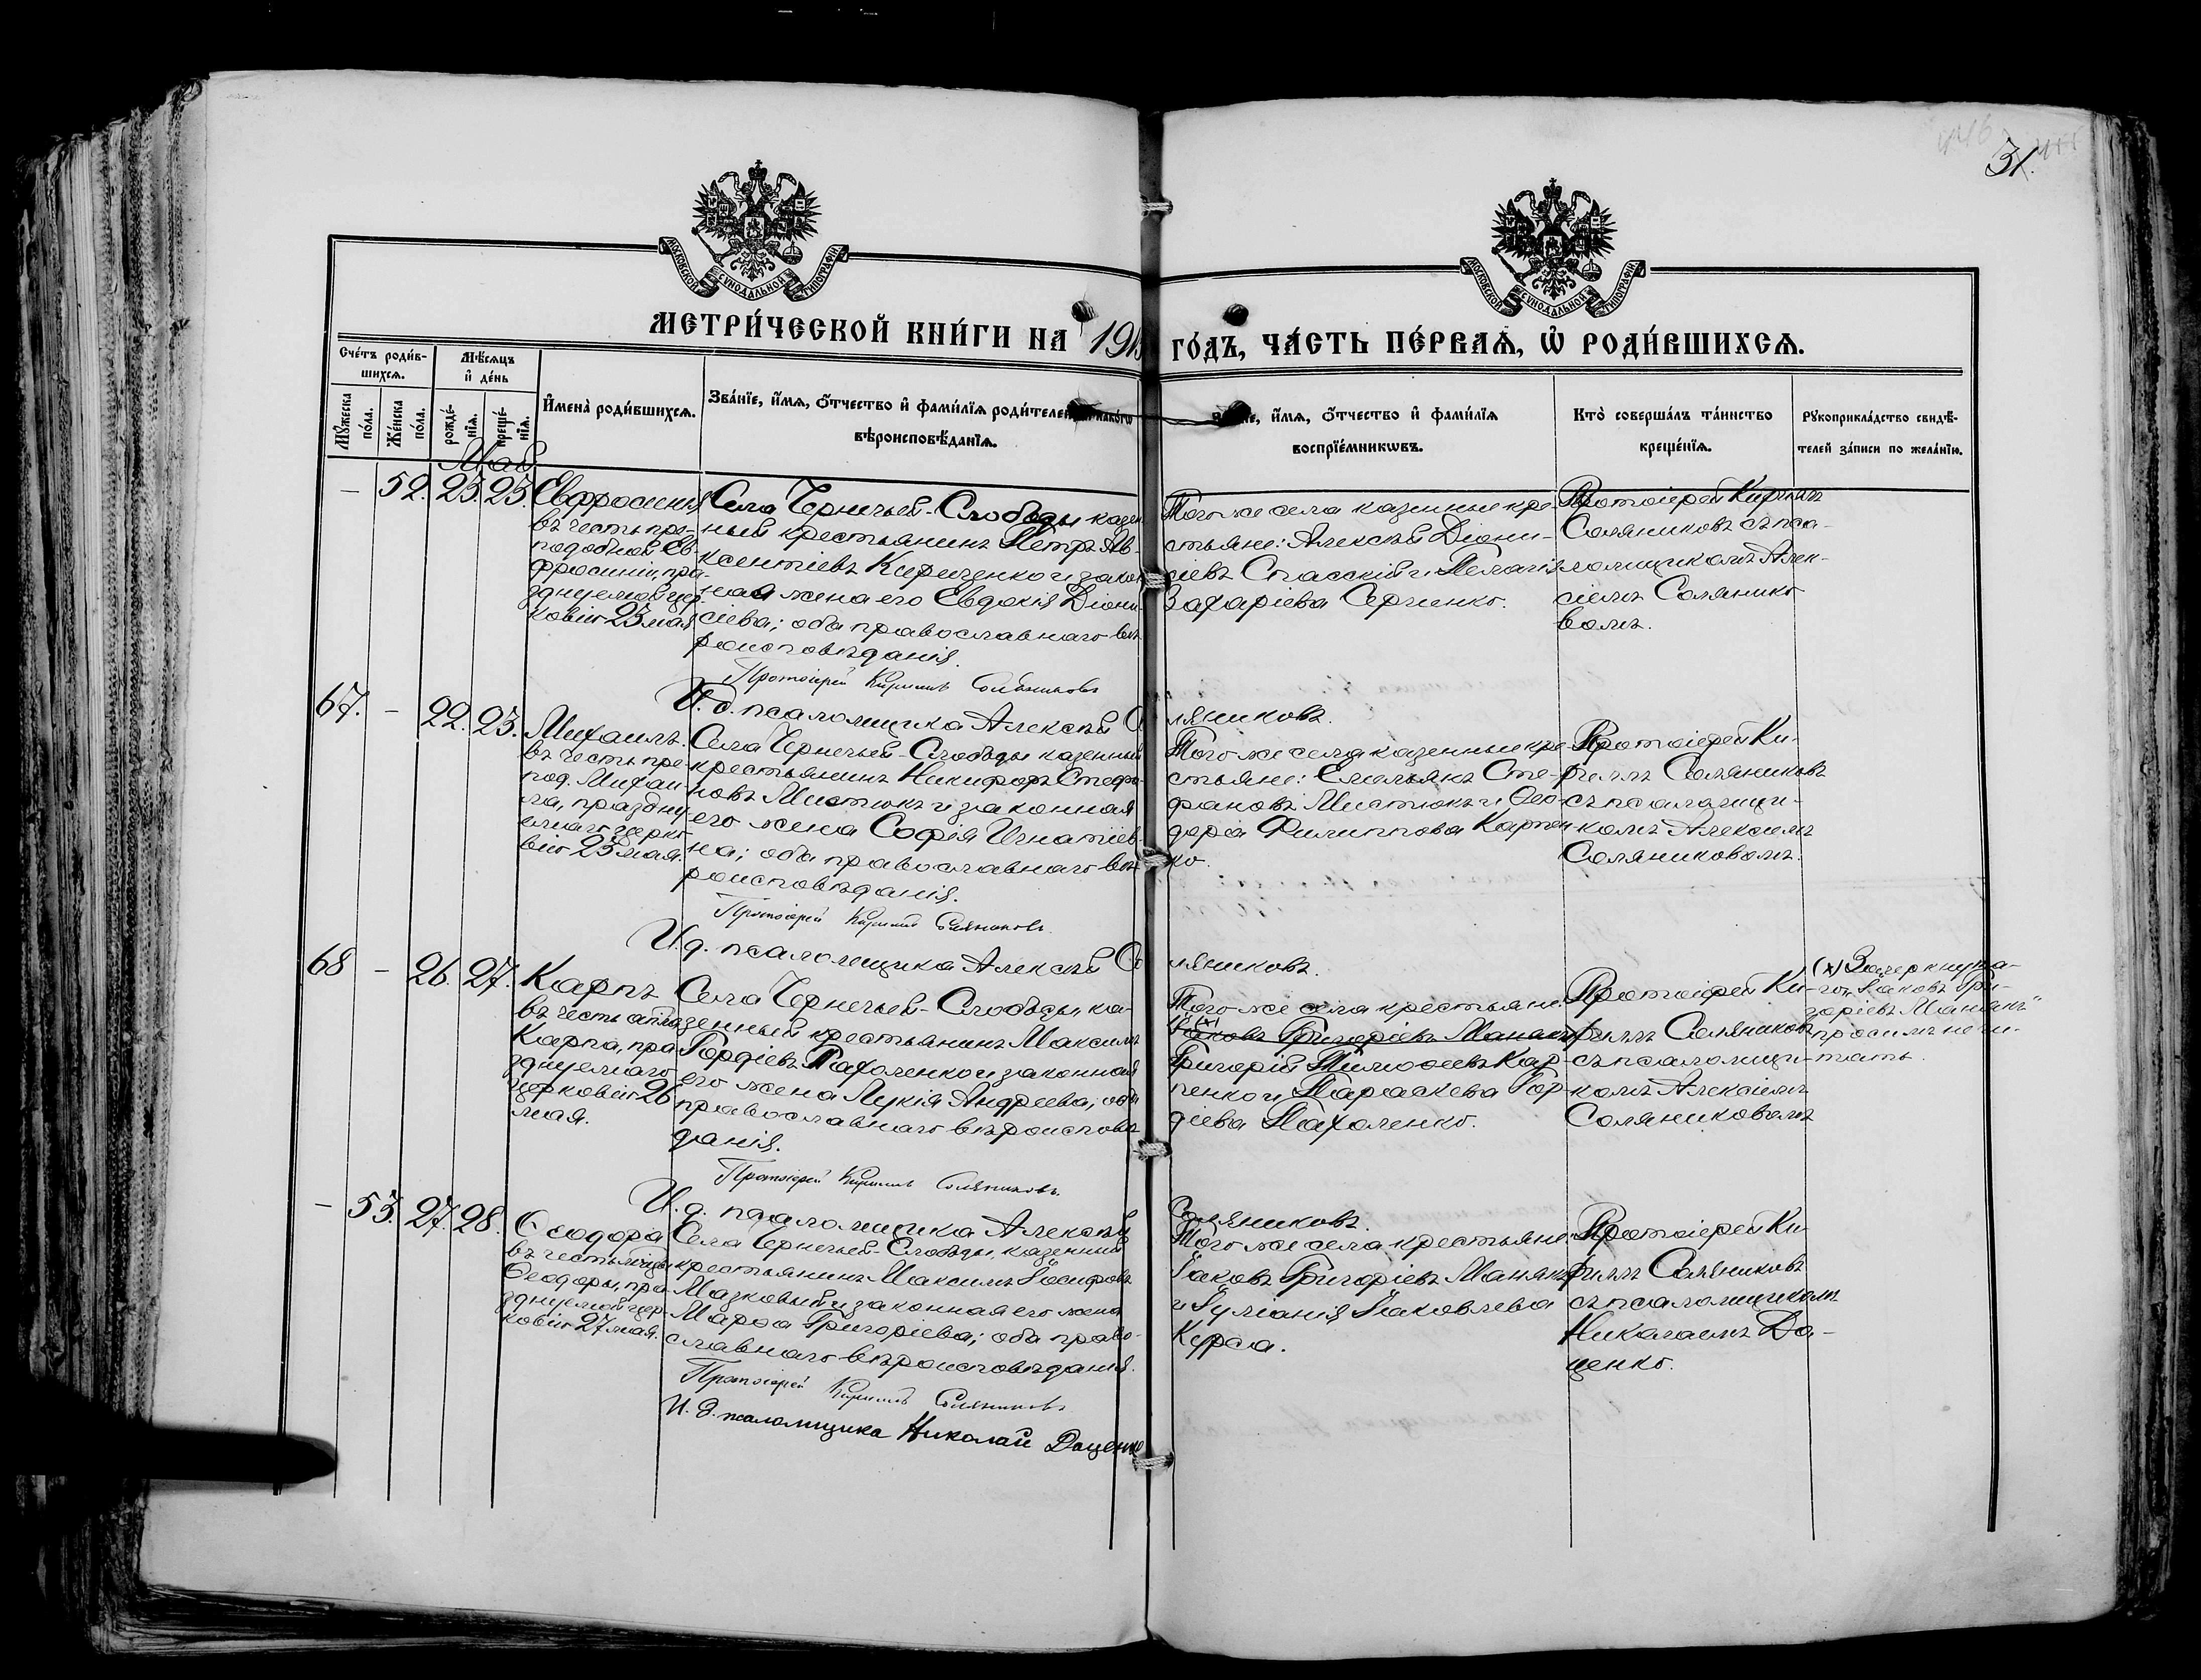 31.
МОСКОВСКОЙ СУНОДАЛЬНОЙ ТИПОГРАФІИ
МОСКОВСКОЙ СУНОДАЛЬНОЙ ТИПОГРАФІИ
МЕТРИ́ЧЕСКОЙ КНИ́ГИ НА 191
ГО́ДЪ, ЧА́СТЬ ПЕ́РВАѦ, Ѡ҆ РОДИ́ВШИХСѦ.
Сче́тъ роди́в-
шихсѧ.
Мѣ́сѧцъ
и҆ де́нь
Мꙋ́жеска
по́ла.
Же́нска
по́ла.
рожде́-
нїѧ.
креще́-
нїѧ.
И҆мена̀ роди́вшихсѧ.
Зва́нїе, и҆́мѧ, о҆́тчество и҆ фами́лїѧ роди́телей
вѣроисповѣ́данїѧ.
и҆́мѧ, о҆́тчество и҆ фами́лїѧ
воспрїе́мникѡвъ.
Кто̀ соверша́лъ та́инство
креще́нїѧ.
Рꙋкоприкла́дство свидѣ́-
телей за́писи по жела́нїю.
Май
— 52. 25. 25.
Евфросинія
въ честь пре-
подобной Ев-
фросиніи, пра-
зднуемой цер
ковію 25 мая
Села Чернечьей-Слободы казен
ный крестьянинъ Петръ Ав-
ксентіевъ Кириченко и закон
ная жена его Евдокія Діони-
сіева; оба православнаго вѣ
роисповѣданія.
Протоіерей Кириллъ Соляниковъ
И. д. псаломщика Алексѣй Со
ляниковъ.
Того же села казенные кре-
стьяне: Алексѣй Діони-
сіевъ Спасскій и Пелагія
Захаріева Сергіенко.
Протоіерей Кириллъ
Соляниковъ съ пса-
ломщикомъ Алек-
сіемъ Солянико
вымъ.
67. — 22. 23.
Михаилъ.
въ честь пре-
под. Михаи-
ла, праздну
емаго церко
вію 23 мая.
Села Чернечьей-Слободы казенный
крестьянинъ Никифоръ Стефа
новъ Мистюкъ и законная
его жена Софія Игнатіев-
на; оба православнаго вѣ
роисповѣданія.
Протоіерей Кириллъ Соляниковъ.
И. д. псаломщика Алексѣй Со
ляниковъ.
Того же села казенные кре-
стьяне: Емельянъ Сте-
фановъ Мистюкъ и Ѳео-
дора Филиппова Карпен
ко.
Протоіерей Ки-
риллъ Соляниковъ
съ псаломщи-
комъ Алексіемъ
Соляниковымъ.
68 — 26. 27.
Карпъ
въ честь апла
Карпа, пра
зднуемаго
церковію 26
мая.
Села Чернечьей-Слободы ка-
зенный крестьянинъ Максимъ
Гордіевъ Пахоленко и законная
его жена Лукія Андреева; оба
православнаго вѣроисповѣ
данія.
Протоіерей Кириллъ Соляниковъ.
И. д. псаломщика Алексѣй
Соляниковъ.
Того же села крестьяне:
(х)
Іаковъ Григоріевъ Манякъ
Григорій Тимоѳеевъ Кар-
пенко и Параскева Гор-
діева Пахоленко.
Протоіерей Ки-
риллъ Соляниковъ
съ псаломщи-
комъ Алексіемъ
Соляниковымъ
(х) Зачеркнута-
го „Іаковъ Гри-
горіевъ Манякъ“
просимъ не чи-
тать.
— 53. 27. 28.
Ѳеодора
въ честь мцы
Ѳеодоры, пра
зднуемой цер-
ковію 27 мая.
Села Чернечьей-Слободы, казенный
крестьянинъ Максимъ Іосифовъ
Мазковый и законная его жена
Марѳа Григоріева; оба право-
славнаго вѣроисповѣданія.
Протоіерей Кириллъ Соляниковъ
И. д. псаломщика Николай Доценко
Того же села крестьяне
Іаковъ Григоріевъ Манякъ
и Іуліанія Іаковлева
Курса.
Протоіерей Ки-
риллъ Соляниковъ
съ псаломщикомъ
Николаемъ До-
ценко.